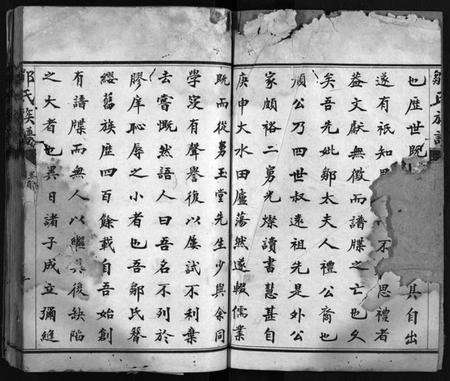 也歷世既其自出
遂有祇知不思禮者
蓋文獻無徵而譜牒之亡也久
矣吾先妣鄒太夫人禮公裔也
順公乃四世叔遠祖先是外公
家頗裕二舅光燦讀書慧甚自
庚申大水田廬蕩然遂輟儒業
既而從舅玉堂先生少與余同
學定有聲譽後以屢試不利棄
去嘗慨然語人曰吾名不列於
膠庠恥辱之小者也吾鄒氏簪
纓舊族歷四百餘載自吾始創
有譜牒而無人以繼其後缺陷
之大者也異日諸子成立彌縫
鄒氏族譜